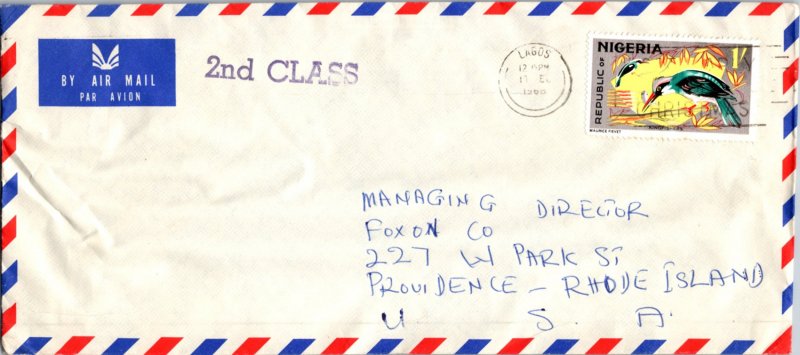 BY AIR MAIL
PAR AVION
2nd CLASS
LAGOS
1966
REPUBLIC OF
NIGERIA
1/
MAURICE FIEVET
KINGFISHERS
MANAGING DIRECTOR
FOXON CO
227 W PARK ST
PROVIDENCE - RHODE ISLAND
U S. A.